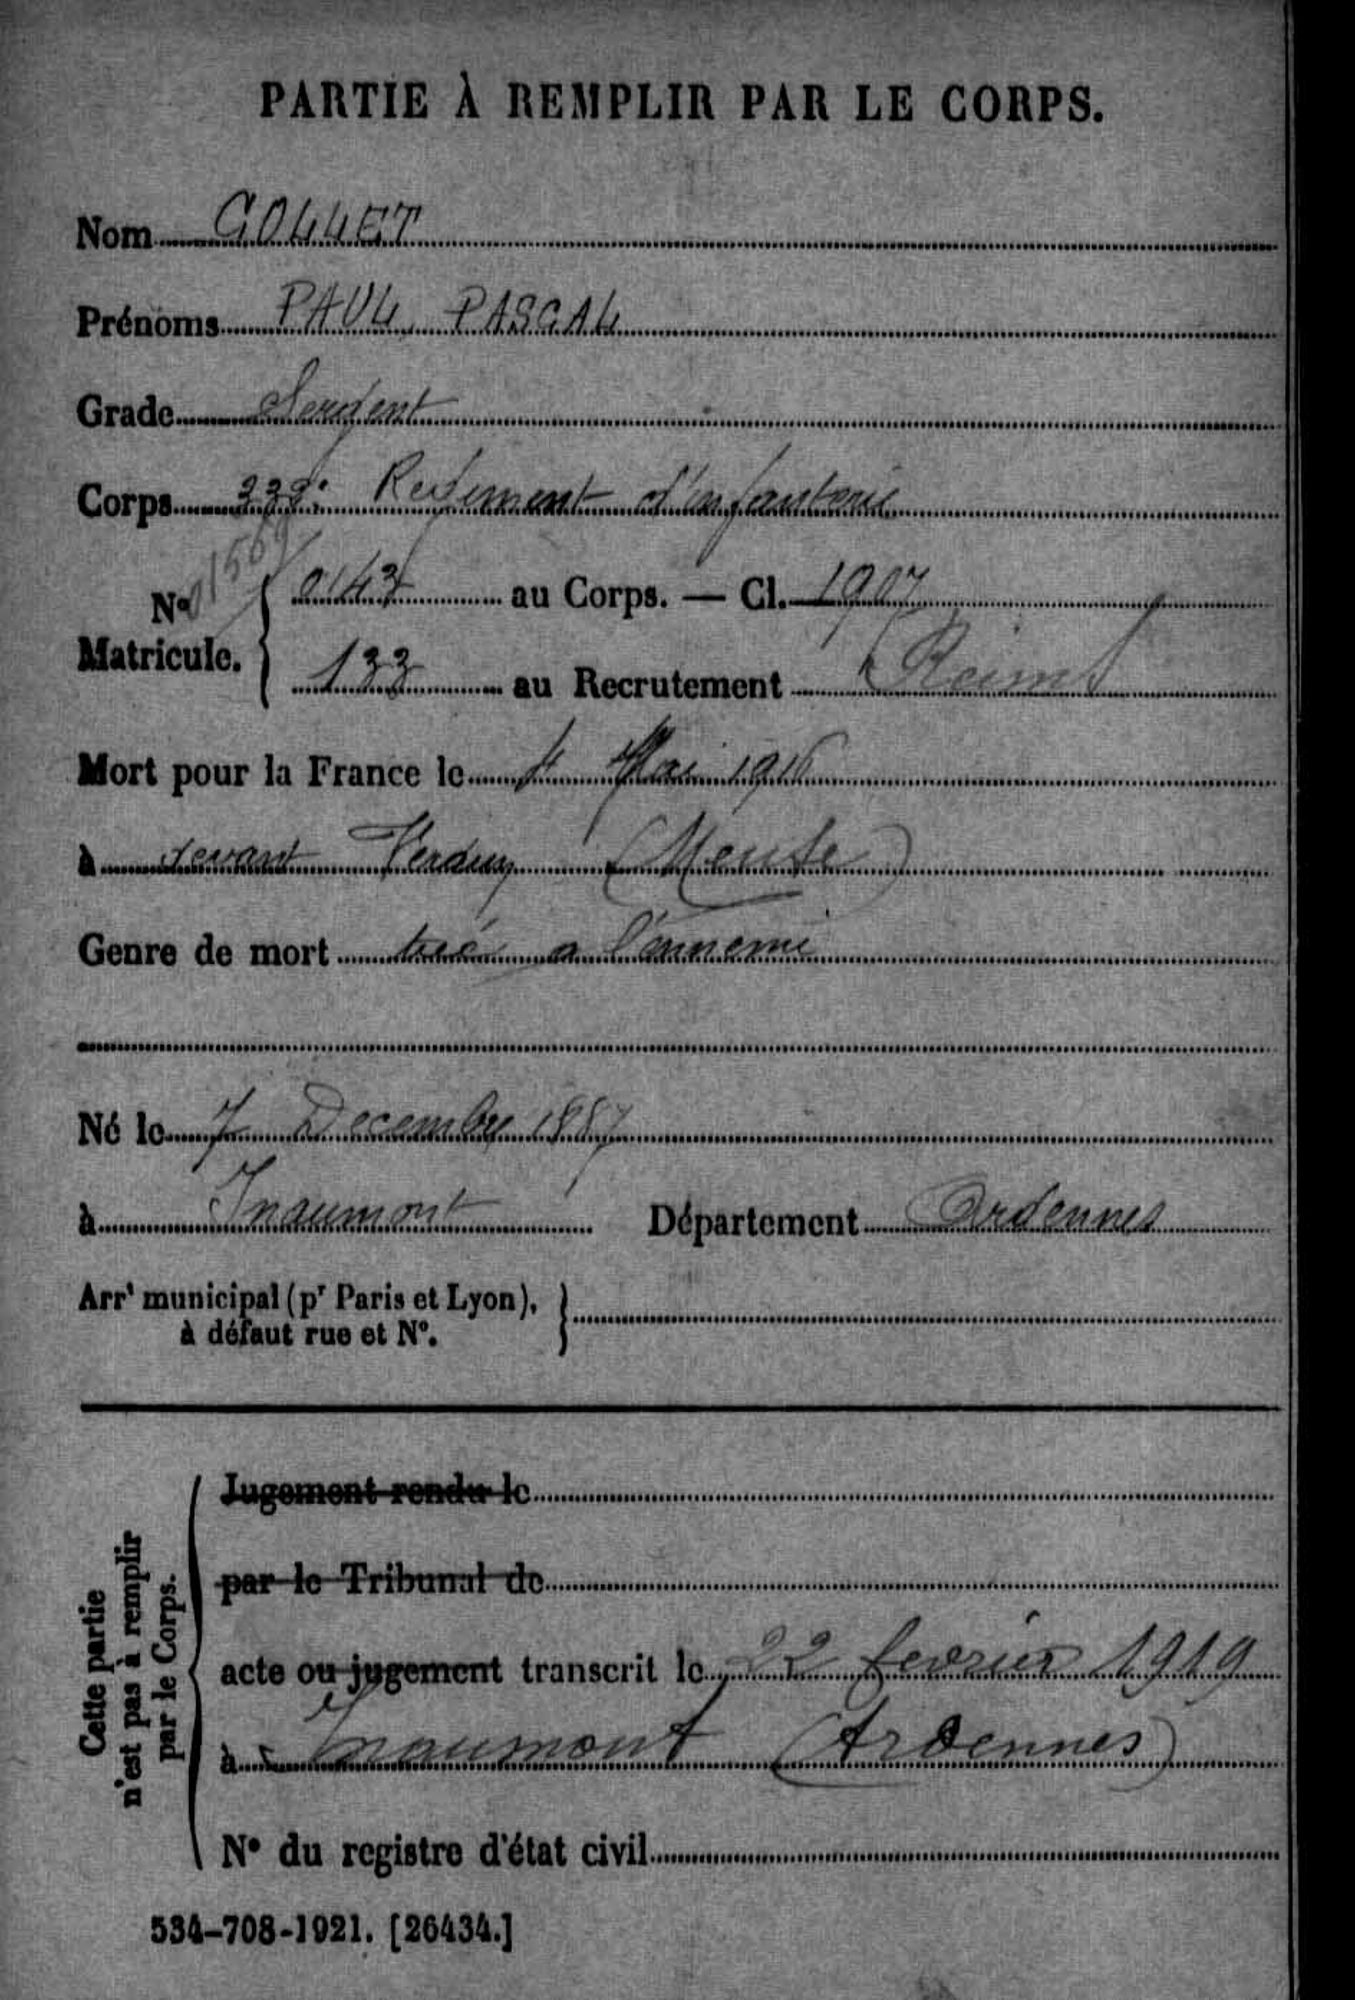 PARTIE À REMPLIR PAR LE CORPS.
Nom GOLLET
Prénoms PAUL PASCAL
Grade Sergent
Corps 332e Regiment d'infanterie
01569
No Matricule. 0143 au Corps. — Cl. 1907
133 au Recrutement Reims
Mort pour la France le 4 Mai 1916
à devant Verdun (Meuse)
Genre de mort tué a l'ennemi
Né le 7 Decembre 1887
à Inaumont Département Ardennes
Arrt municipal (pr Paris et Lyon),
à défaut rue et No.
Cette partie n'est pas à remplir par le Corps.
Jugement rendu le
par le Tribunal de
acte ou jugement transcrit le 22 fevrier 1919
à Inaumont (Ardennes)
No du registre d'état civil
534-708-1921. [26434.]